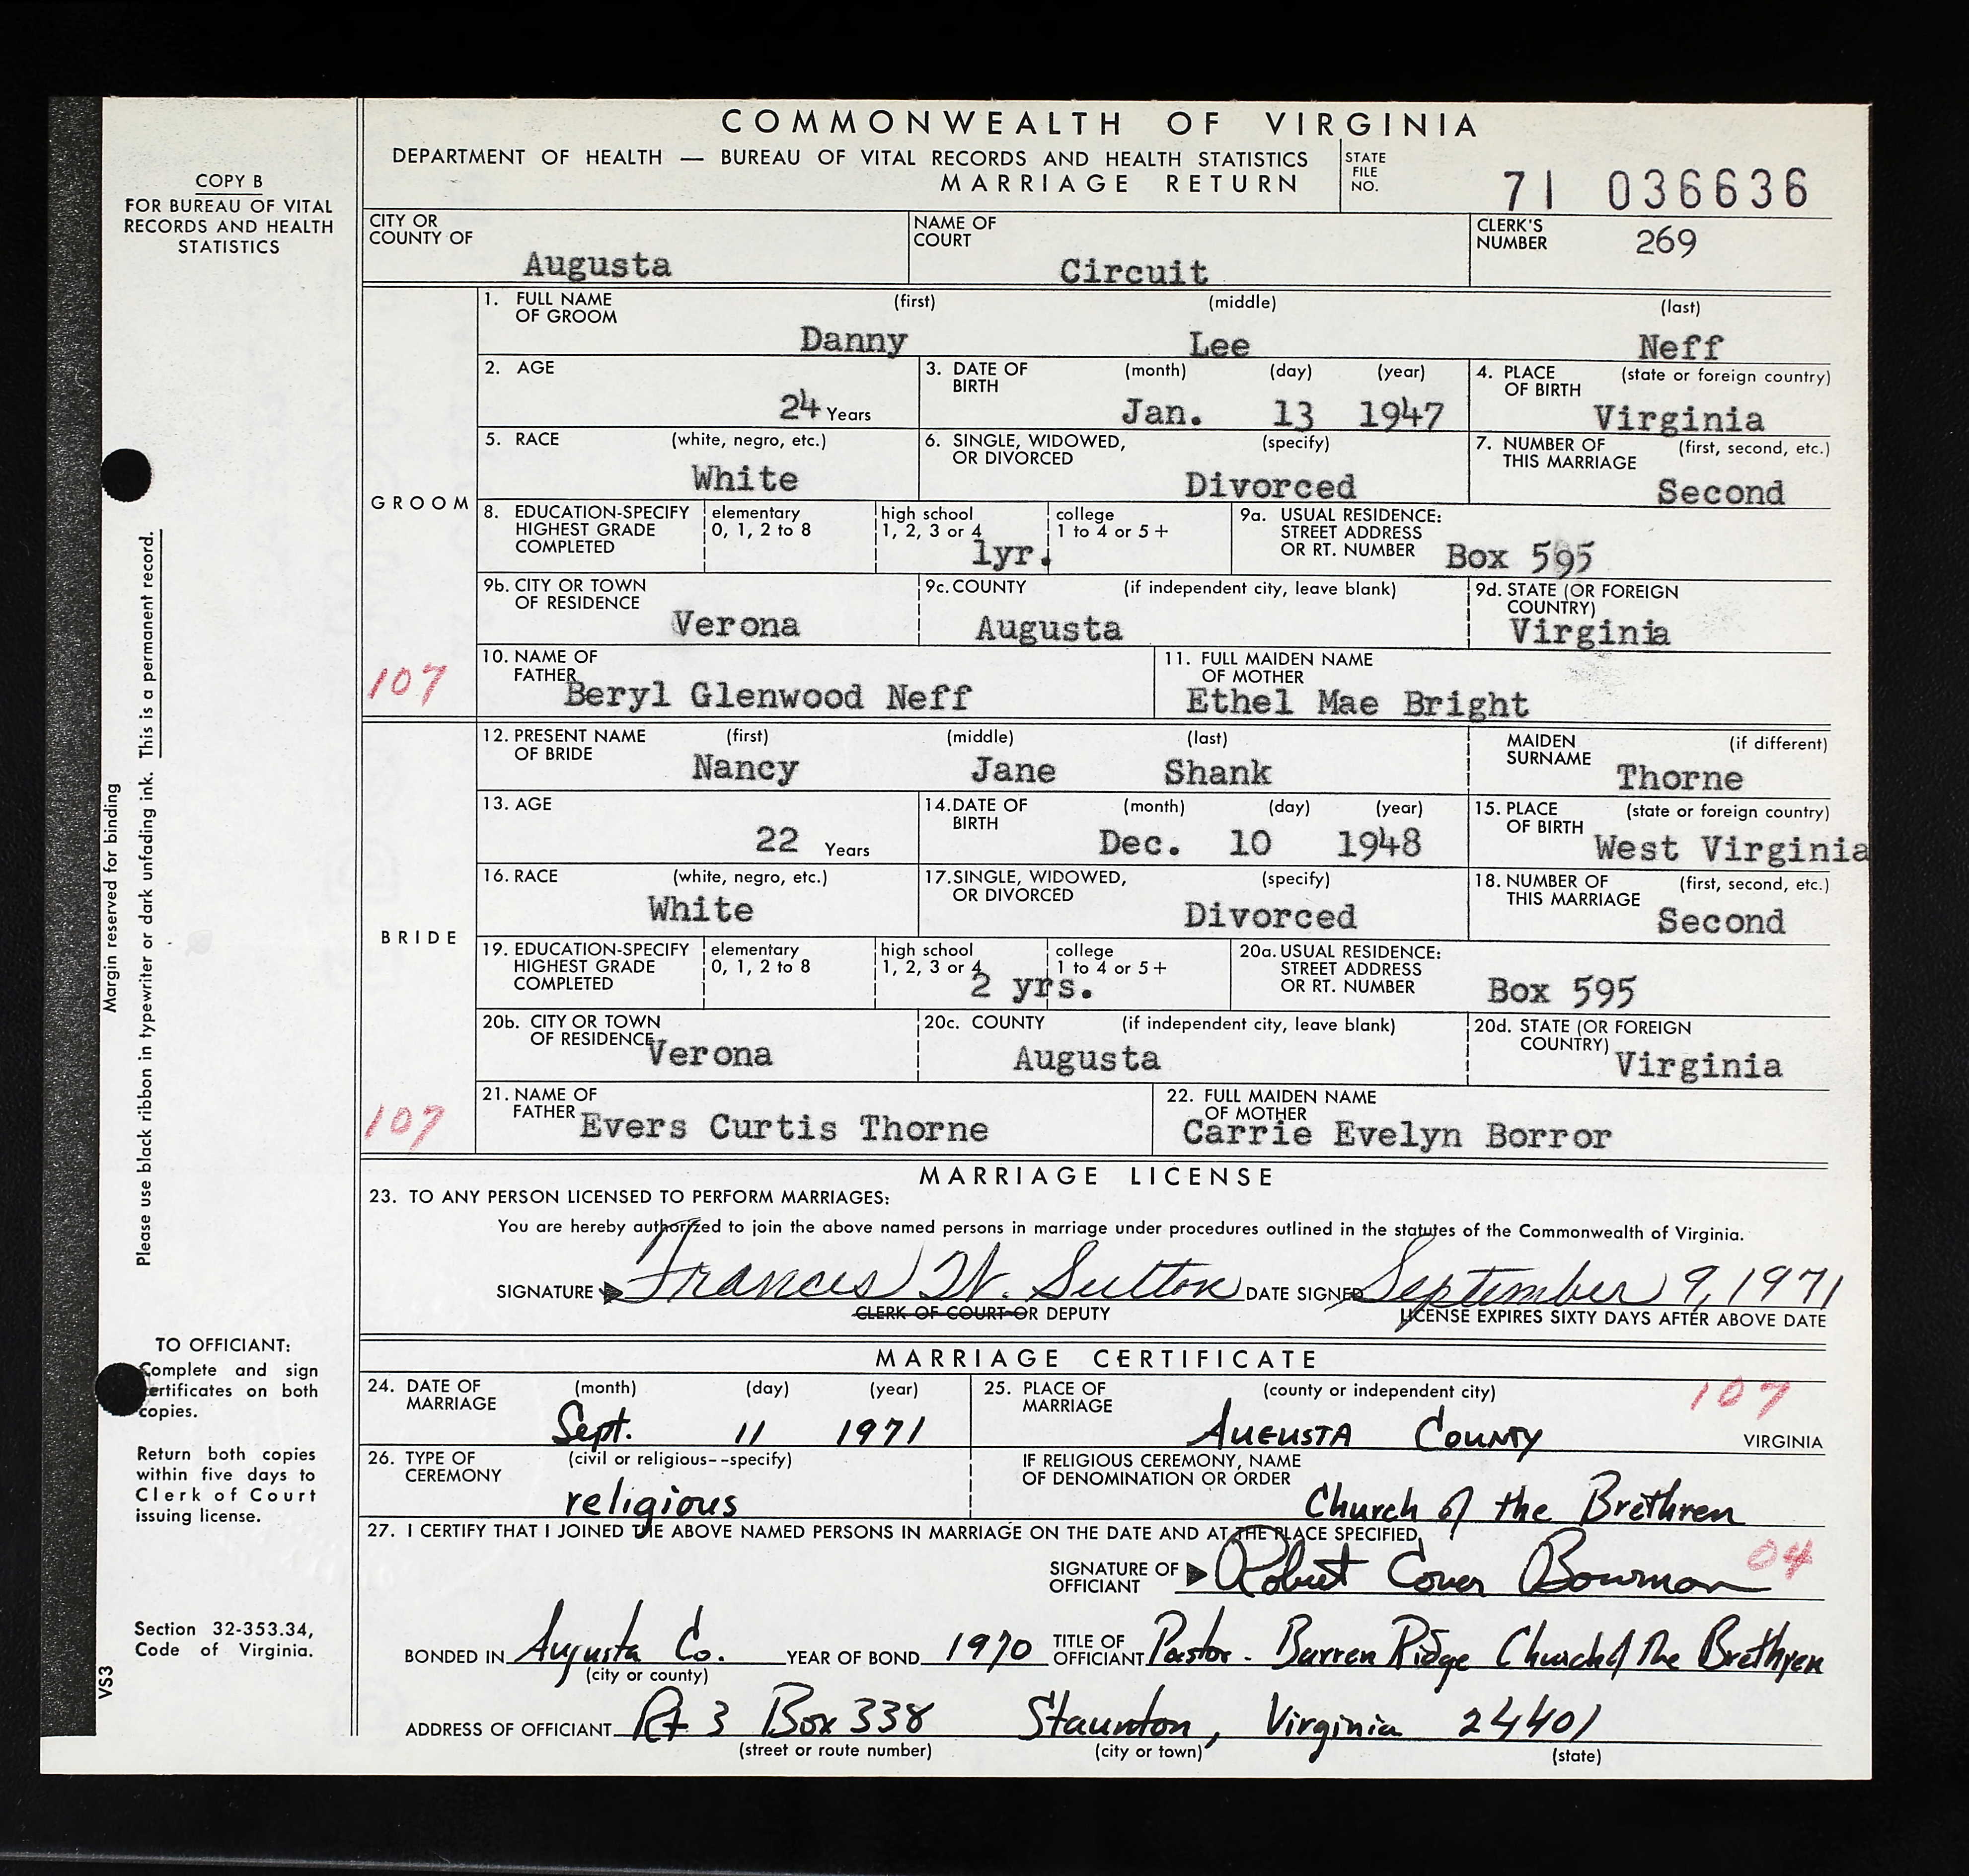 COMMONWEALTH OF VIRGINIA
DEPARTMENT OF HEALTH — BUREAU OF VITAL RECORDS AND HEALTH STATISTICS
MARRIAGE RETURN
STATE FILE NO. 71 036636
COPY B
FOR BUREAU OF VITAL
RECORDS AND HEALTH
STATISTICS
CITY OR COUNTY OF Augusta
NAME OF COURT Circuit
CLERK'S NUMBER 269
GROOM
1. FULL NAME OF GROOM (first) (middle) (last)
Danny Lee Neff
2. AGE 24 Years
3. DATE OF BIRTH (month) (day) (year) Jan. 13 1947
4. PLACE OF BIRTH (state or foreign country) Virginia
5. RACE (white, negro, etc.) White
6. SINGLE, WIDOWED, OR DIVORCED (specify) Divorced
7. NUMBER OF THIS MARRIAGE (first, second, etc.) Second
8. EDUCATION-SPECIFY HIGHEST GRADE COMPLETED
elementary 0, 1, 2 to 8
high school 1, 2, 3 or 4 1yr.
college 1 to 4 or 5+
9a. USUAL RESIDENCE: STREET ADDRESS OR RT. NUMBER Box 595
9b. CITY OR TOWN OF RESIDENCE Verona
9c. COUNTY (if independent city, leave blank) Augusta
9d. STATE (OR FOREIGN COUNTRY) Virginia
107
10. NAME OF FATHER Beryl Glenwood Neff
11. FULL MAIDEN NAME OF MOTHER Ethel Mae Bright
BRIDE
12. PRESENT NAME OF BRIDE (first) (middle) (last)
Nancy Jane Shank
MAIDEN SURNAME (if different) Thorne
13. AGE 22 Years
14. DATE OF BIRTH (month) (day) (year) Dec. 10 1948
15. PLACE OF BIRTH (state or foreign country) West Virginia
16. RACE (white, negro, etc.) White
17. SINGLE, WIDOWED, OR DIVORCED (specify) Divorced
18. NUMBER OF THIS MARRIAGE (first, second, etc.) Second
19. EDUCATION-SPECIFY HIGHEST GRADE COMPLETED
elementary 0, 1, 2 to 8
high school 1, 2, 3 or 4 2 yrs.
college 1 to 4 or 5+
20a. USUAL RESIDENCE: STREET ADDRESS OR RT. NUMBER Box 595
20b. CITY OR TOWN OF RESIDENCE Verona
20c. COUNTY (if independent city, leave blank) Augusta
20d. STATE (OR FOREIGN COUNTRY) Virginia
107
21. NAME OF FATHER Evers Curtis Thorne
22. FULL MAIDEN NAME OF MOTHER Carrie Evelyn Borror
MARRIAGE LICENSE
23. TO ANY PERSON LICENSED TO PERFORM MARRIAGES:
You are hereby authorized to join the above named persons in marriage under procedures outlined in the statutes of the Commonwealth of Virginia.
SIGNATURE Frances W. Sutton DATE SIGNED September 9, 1971
CLERK OF COURT OR DEPUTY
LICENSE EXPIRES SIXTY DAYS AFTER ABOVE DATE
MARRIAGE CERTIFICATE
24. DATE OF MARRIAGE (month) (day) (year) Sept. 11 1971
25. PLACE OF MARRIAGE (county or independent city) 107
AUGUSTA COUNTY VIRGINIA
26. TYPE OF CEREMONY (civil or religious--specify) religious
IF RELIGIOUS CEREMONY, NAME OF DENOMINATION OR ORDER Church of the Brethren
27. I CERTIFY THAT I JOINED THE ABOVE NAMED PERSONS IN MARRIAGE ON THE DATE AND AT THE PLACE SPECIFIED,
SIGNATURE OF OFFICIANT Robert Cover Bowman 04
BONDED IN Augusta Co. YEAR OF BOND 1970 TITLE OF OFFICIANT Pastor - Barren Ridge Church of the Brethren
(city or county)
ADDRESS OF OFFICIANT Rt 3 Box 338 Staunton, Virginia 24401
(street or route number) (city or town) (state)
Margin reserved for binding
Please use black ribbon in typewriter or dark unfading ink. This is a permanent record.
TO OFFICIANT:
Complete and sign
certificates on both
copies.
Return both copies
within five days to
Clerk of Court
issuing license.
Section 32-353.34,
Code of Virginia.
VS3